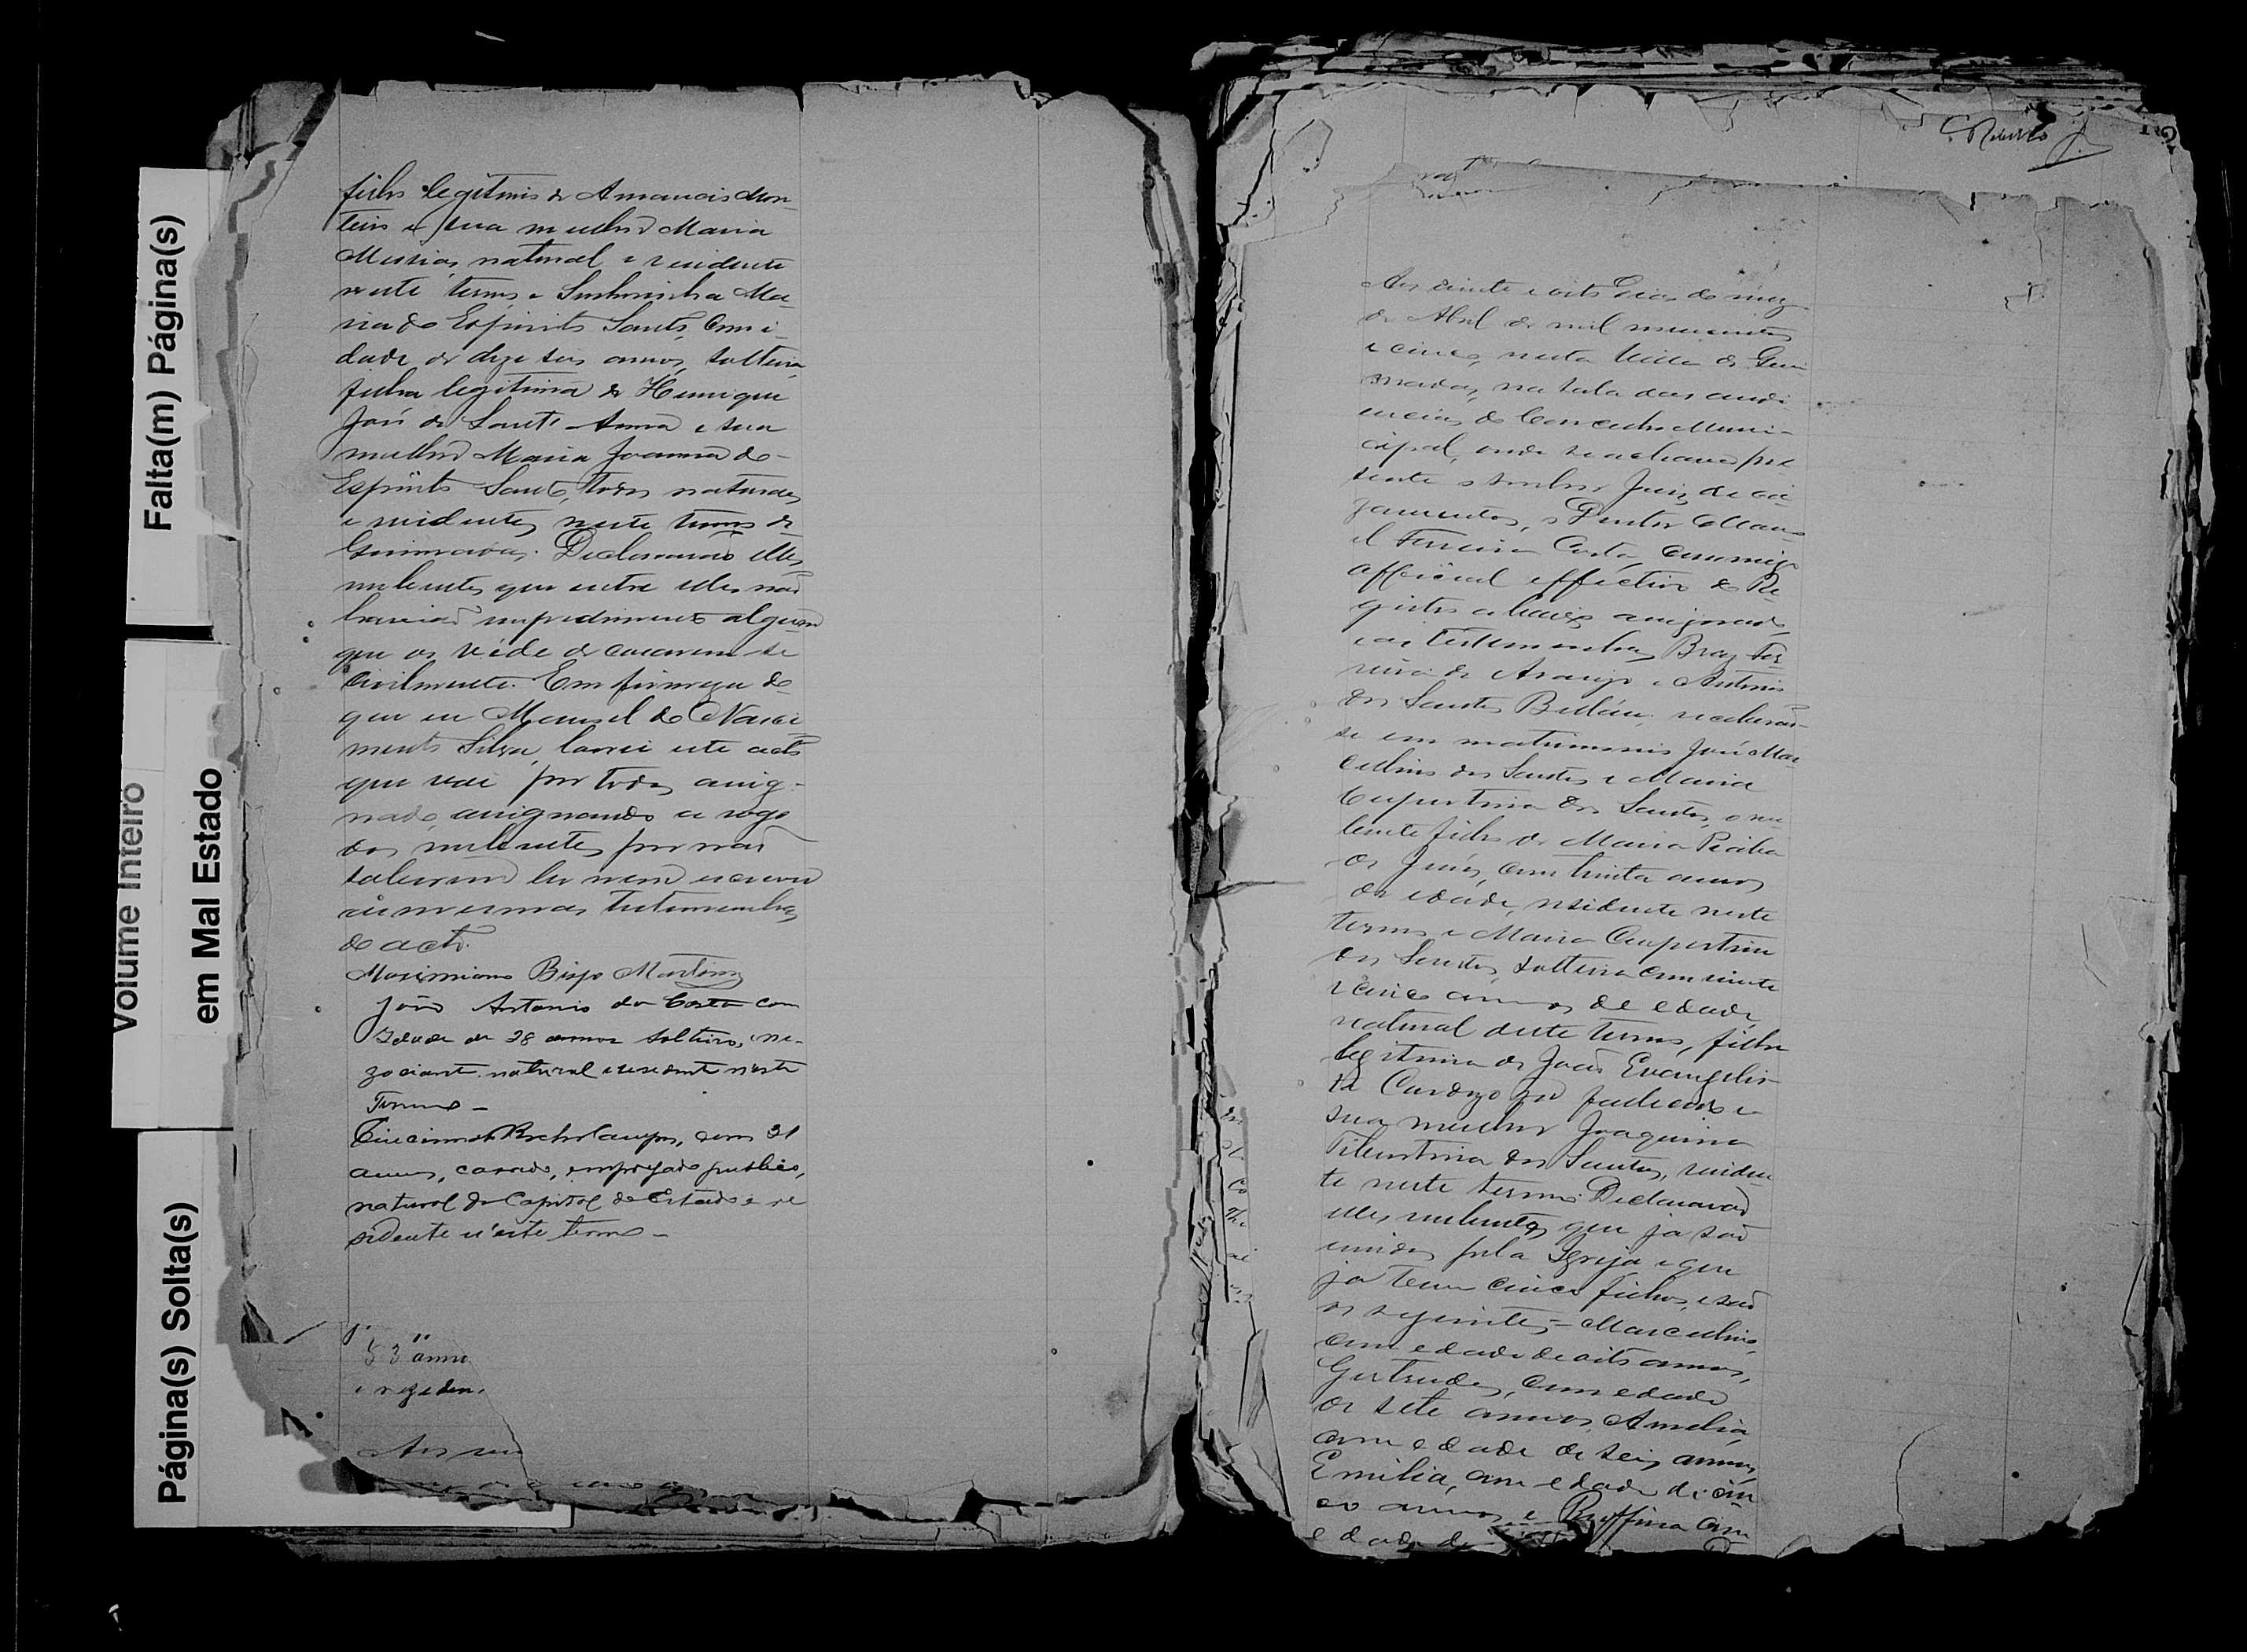 Falta(m) Página(s)
Volume Inteiro
em Mal Estado
Página(s) Solta(s)
filho legitimo de Amancio Mon-
teiro e sua mulher Maria
Messias, natural e residente
neste termo, e Senhorinha Ma-
ria do Espirito Santo, com i-
dade de dezeseis annos, solteira,
filha legitima de Henrique
José de Sant'Anna e sua
mulher Maria Joanna do
Espirito Santo, todos naturaes
e residentes neste termo de
Declararão elles
nubentes que entre elles não
haviaõ impedimento algum
que os véde de casarem-se
civilmente. Em firmeza do
que eu Manoel do Nasci-
mento Silva, lavrei este acto
que vai por todos assig-
nado, assignando a rogo
dos nubentes por não
saberem ler nem escrever
as mesmas testemunhas
do acto.
Maximiano Bispo Martins
João Antonio da Costa com
Idade de 28 annos solteiro, ne-
gociante natural e residente neste
Termo -
com 31
annos, casado, empregado publico,
natural da Capital do Estado e re
sidente n'este termo -
53 anno
e reziden
Aos
Aos vinte e oito dias do mez
de Abril de mil novecentos
e cinco, nesta Villa de Quei
madas, na sala das audi
encias do Conselho Muni-
cipal, onde se achava pre
sente o senhor Juiz de ca-
zamentos, o Doutor Mano
el Ferreira Costa, commigo
official effectivo do Re-
gistro abaixo assignado,
e as testemunhas Braz Fer-
reira de Araujo e Antonio
dos Santos receberão-
se em matrimonio José Mar
cellino dos Santos e Maria
Cupertina dos Santos, o nu-
bente filho de Maria
de Jesus, com trinta annos
de edade, residente neste
termo e Maria Cupertina
dos Santos, solteira com vinte
e cinco annos de edade,
natural deste termo, filha
legitima de João Evangelis-
ta Cardozo e
sua mulher Joaquina
dos Santos, residen
te neste termo. Declararão
elles nubentes que ja são
unidos pela Igreja e que
ja tem cinco filhos, e são
os seguintes - Marcellino,
com edade de oito annos,
Gertrudes, com edade
de sete annos, Amelia,
com edade de seis annos,
Emilia, com edade de cin
co annos, e Ruffina com
edade de